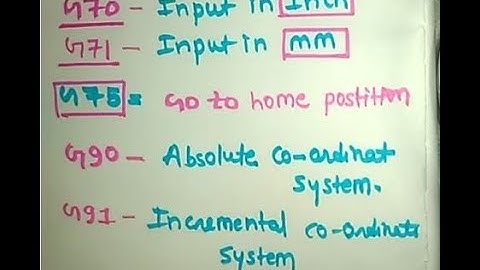 G70 - Input in Inch
G71 - Input in mm
G75 = Go to home postition
G90 - Absolute co-ordinat
System.
G91 - Incremental co-ordinate
System